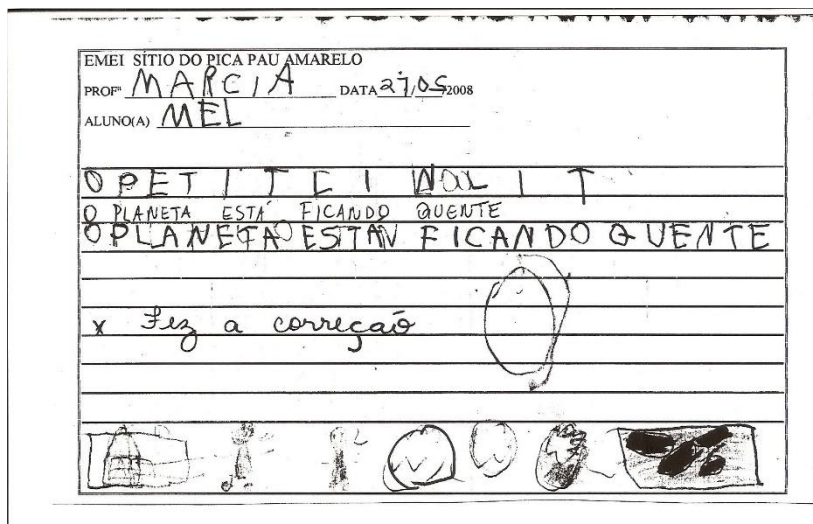 EMEI SÍTIO DO PICA PAU AMARELO
PROFª MARCIA DATA 27/05 2008
ALUNO(A) MEL
O PET I T C I I T
O PLANETA ESTÁ FICANDO QUENTE
O PLANETA ESTA FICANDO QUENTE
x Fez a correção